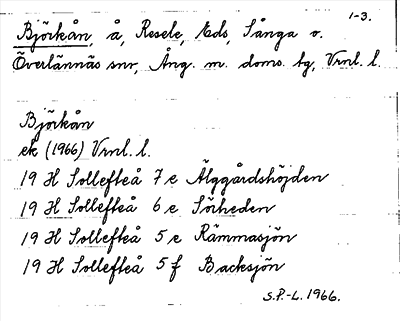 1-3.
Björkån, å, Resele, Eds, Sånga o.
Överlännäs snr, Ång. m. doms. bg, Vrnl. l.
Björkån
ek (1966) Vrnl. l.
19 H Sollefteå 7 e Älggårdshöjden
19 H Sollefteå 6 e Sörheden
19 H Sollefteå 5 e Rämmasjön
19 H Sollefteå 5 f Backsjön
S.P.-L. 1966.